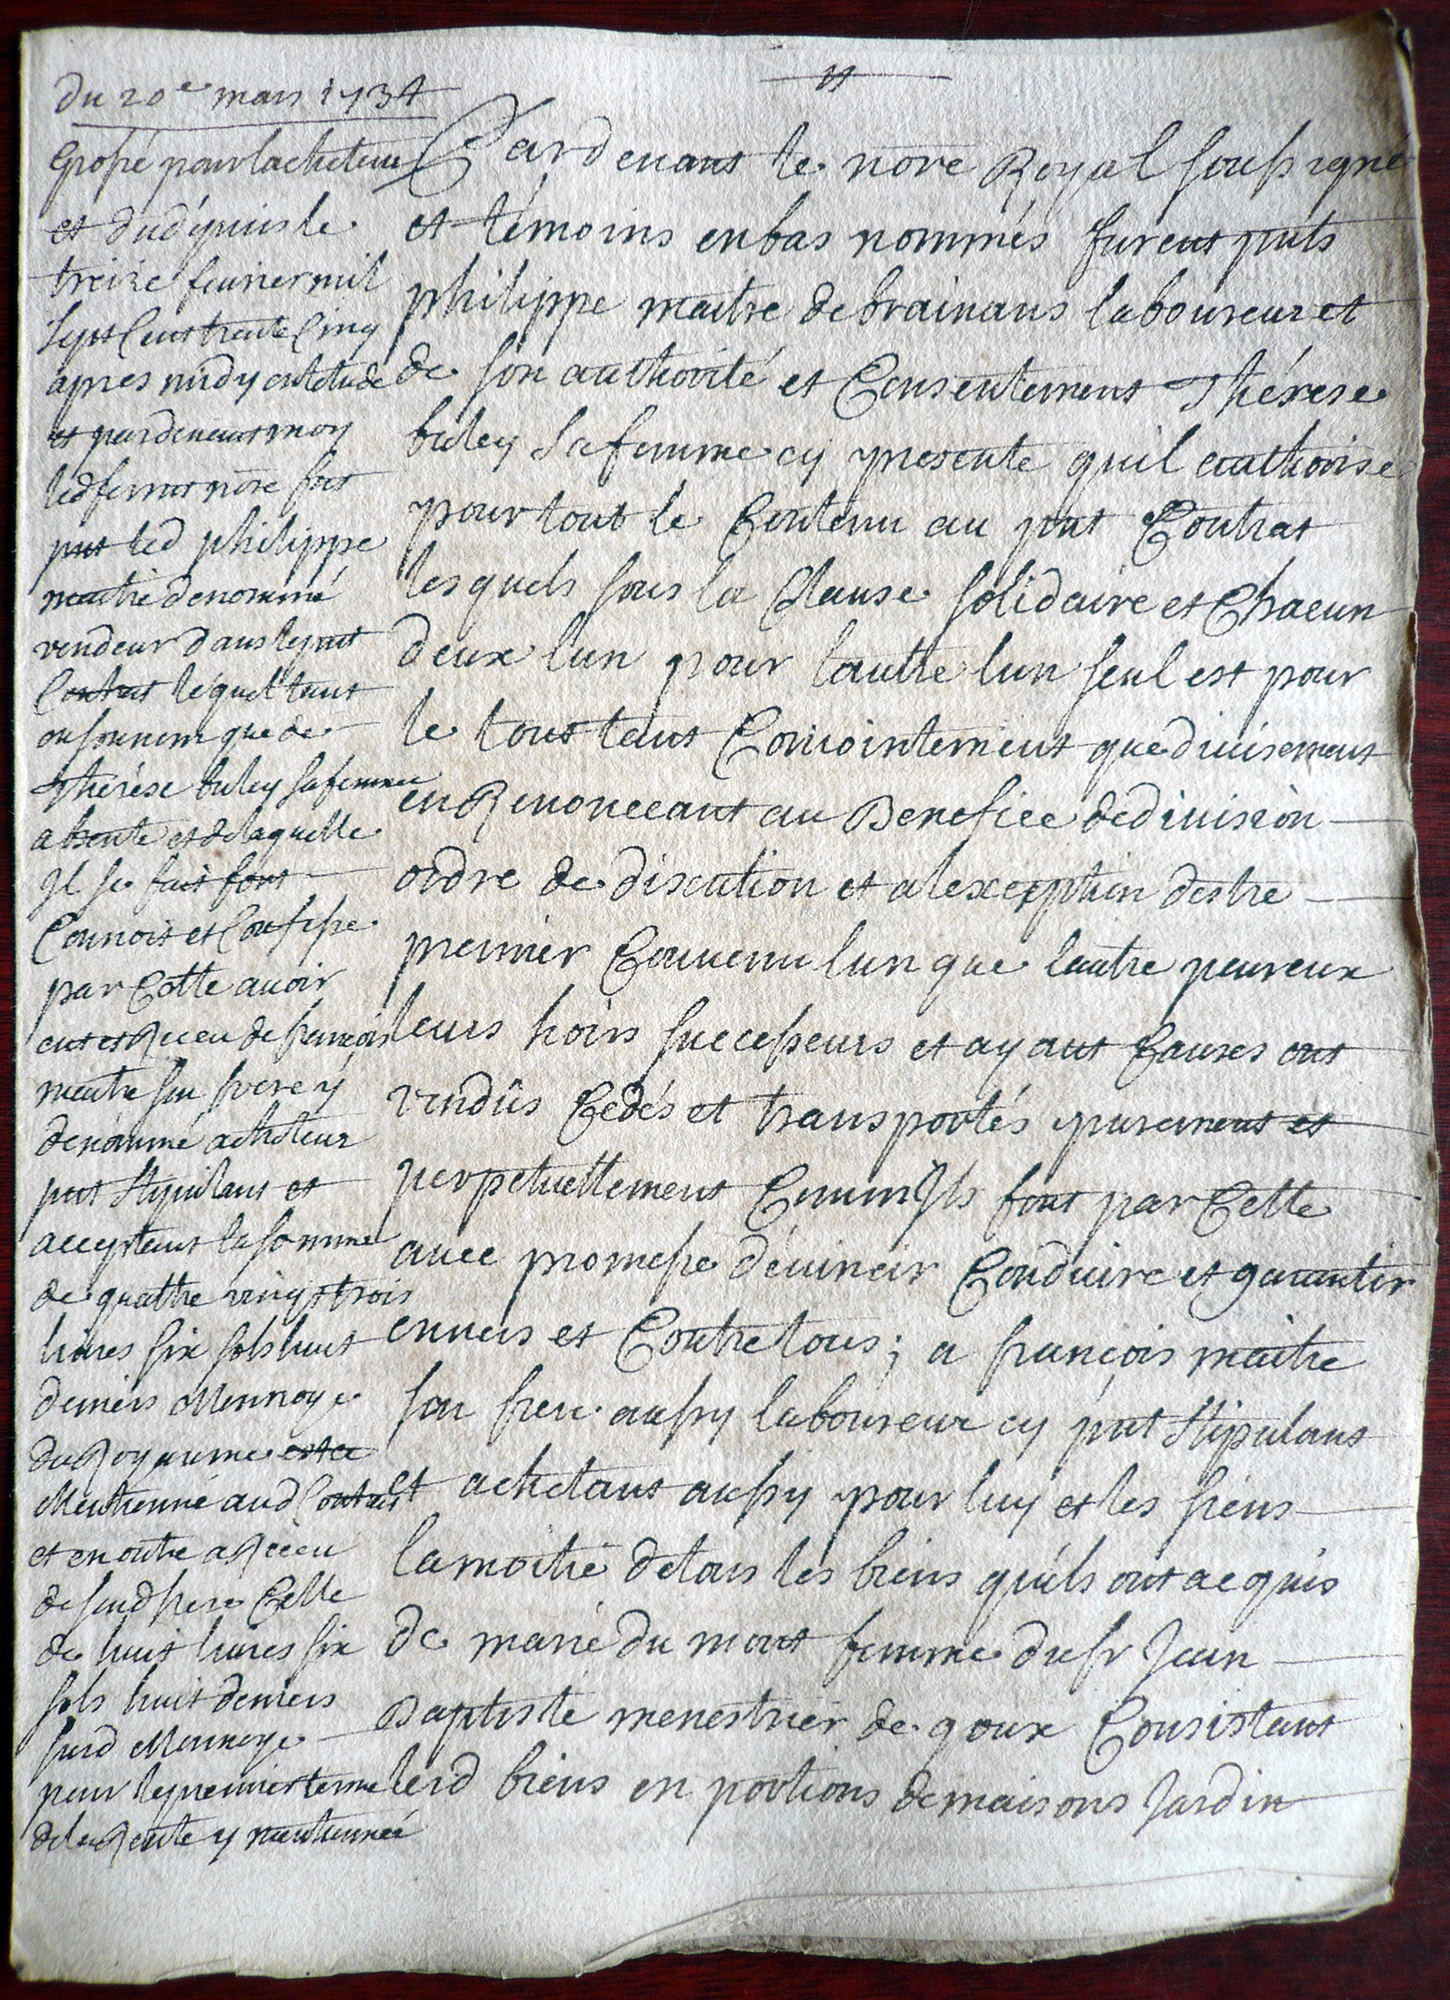 du 20e mars 1734
Grossé pour lacheteur
et dudépuis le
treize feurier mil
sept Cens trente Cinq
apres midy en letude
et pardeuant moy
led ferrot nore fut
pnt led philippe
maitre denommé
vendeur dans le pnt
Contrat lequel tant
en son nom que de
thérése buley sa femme
absente et de laquelle
Il se fait fort
Connoit et Confesse
par Cette auoir
eut et Receu de françois
maitre son frere y
denommé acheteur
pnt stipulant et
acceptant la somme
de quattre vingt trois
liures six sols huit
deniers Monnoye
du Royaume
Mentionné aud Contrat
et en outre a Receu
de sond frere Celle
de huit liures six
sols huit deniers
susd Monnoye
pour le premier terme
de la Rente y mentionnée
Pardeuant le nore Royal soussigné
et témoins enbas nommés furent pnts
philippe maitre de brainans laboureur et
de son authorité et Consentement Thérese
buley Sa femme cy presente quil authorise
pour tout le Contenu au pnt Contrat
lesquels sous la Clause solidaire et Chacun
deux lun pour lautre lun seul est pour
le tout tant Conjointement que diuisement
en Renonceant au Benefice de diuision
ordre de discution et alexception destre
premier Conuenu lun que lautre pour eux
leurs hoirs successeurs et ayant Causes ont
vendûs Cedés et transportés purement et
perpetuellement Comm Ils font par Cette
auec promesse déuincir Conduire et garantir
enuers et Contre tous; a françois maitre
son frere aussy laboureur cy pnt stipulant
et achetant aussy pour luy et les siens
la moitié de tous les biens quils ont acquis
de marie du mont femme du sr Jean
Baptiste menestrier de goux Consistant
lesd biens en portions de maisons Jardin